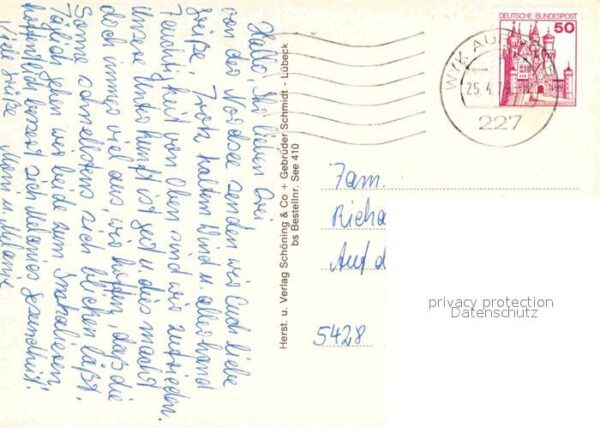 Hallo, Ihr lieben Drei
von der Nordsee senden wir Euch liebe
Grüße. Trotz kaltem Wind u. allerhand
Feuchtigkeit von oben sind wir zufrieden.
Unsere Unterkunft ist gut u. dies macht
doch immer viel aus, wir hoffen, daß die
Sonne schnellstens sich blicken läßt.
Täglich gehen wir beide zum Inhalieren,
hoffentlich bessert sich Melanies Gesundheit!
Viele Grüße Moni u. Melanie
Herst. u. Verlag Schöning & Co + Gebrüder Schmidt - Lübeck
bs Bestellnr. See 410
DEUTSCHE BUNDESPOST
50
WYK AUF
25. 4. 7
227
Fam.
Richa
Auf d
5428
privacy protection
Datenschutz